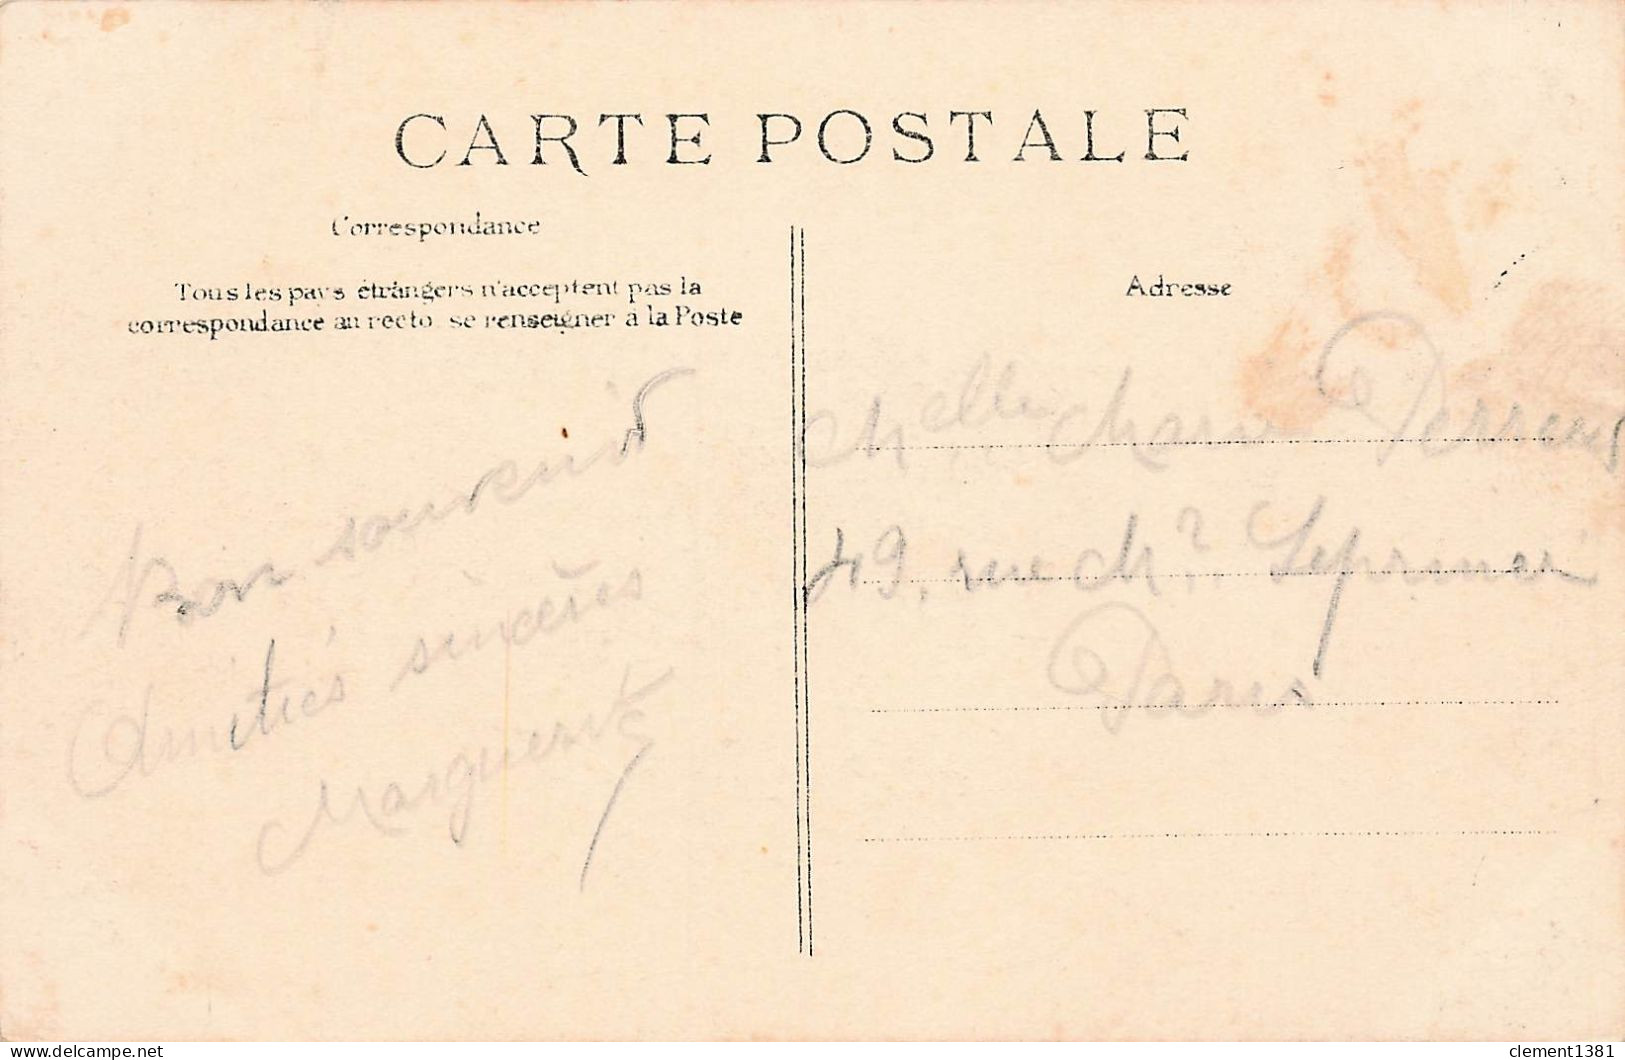 CARTE POSTALE
Correspondance
Tous les pays étrangers n'acceptent pas la
correspondance au recto, se renseigner à la Poste
Adresse
Bon souvenir
Amitiés sincères
Marguerite
Melle Marie
49, rue Mr
Paris
delcampe.net
clement1381